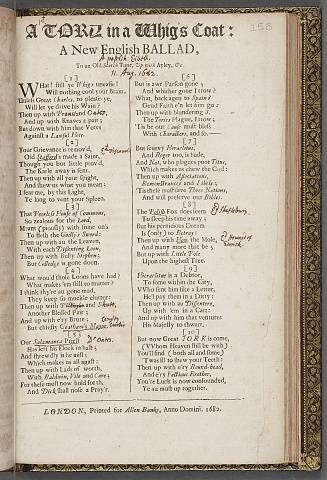 158
A TORY in a Whig's Coat:
A New English BALLAD,
A popish Libell.
To an Old Scotch Tune, Up with Ayley, &c.
11. Aug. 1682.
[1]
WHat! still ye Whigs uneasie!
Will nothing cool your Brain,
Unless Great Charles, to please ye,
Will let ye drive his Wain?
Then up with and Oates,
And up with Knaves a pair;
But down with him that Votes
Against a Lawful Heir.
[2]
Your Grievance is remov'd,
Old Stafford's made a Saint,
Though you but little prov'd,
The Karle away is sent.
Then up with all your spight,
And shew us what you mean;
I fear me, by this Light,
Ye long to vent your Spleen.
[3]
That Voteless House of Commons,
So zealous for the Lord,
Meant (piously) with some on's
To flesh the Godly's Sword:
Then up with au the Leaven,
With each Dissenting Loon,
Then up with Gully Stephen;
But Colledge is gone doon.
[4]
What wou'd those Loons have had?
What makes 'em still to mutter?
I think they're au gone mad,
They keep so muckle clutter:
Then up with and
Another Blessed Pair;
And up with e'ry Brute;
But chiefly
[5]
Our Salamanca Priest
Dr Oates.
Has left his Flock in hast;
And shrewdly is he mist;
Which makes us au agast:
Then up with Lads of worth,
With Baldwin, Vile and Care;
For these must now hold forth,
And Dick shall nose a Pray'r.
[6]
But is awr Parson gone;
And whither gone I trow?
What, back agen to Spain?
Geud Faith e'en let him go:
Then up with blundering
The Tories Plague, I trow;
'Tis he our Cause must bless
With Characters, and so.
[7]
But scurvy Heraclitus,
And Roger too, is bade,
And Nat, who plagues poor Titus,
Which makes us chew the Cud:
Then up with Associations,
Remonstrances and Libels;
'Tis these must save Three Nations,
And will preserve our Bibles.
[8]
The Polish Fox does seem
E. of Shaftsbury.
To sleep his time away;
But his pernicious Dream
Is (only) to Betray:
Then up with Hem the Mole,
And many more that be;
But up with Little Vole
Upon the highest Tree.
[9]
Heraclitus is a Debtor,
To some within the City,
VVho sent him sike a Letter,
He'l pay them in a Ditty:
Then up with au Dissenters,
Up with 'em in a Cart;
And up with him that ventures
His Majesty to thwart.
[10]
But now Great YORK is come,
(VVhom Heaven still be with)
You'll find (both all and some)
'Twas ill to shaw your Teeth:
Then up with e'ry Round-head,
And e'ry Factious Brother,
You're Luck is now confounded,
Ye au must up together.
LONDON, Printed for Allen Banks, Anno Domini. 1682.